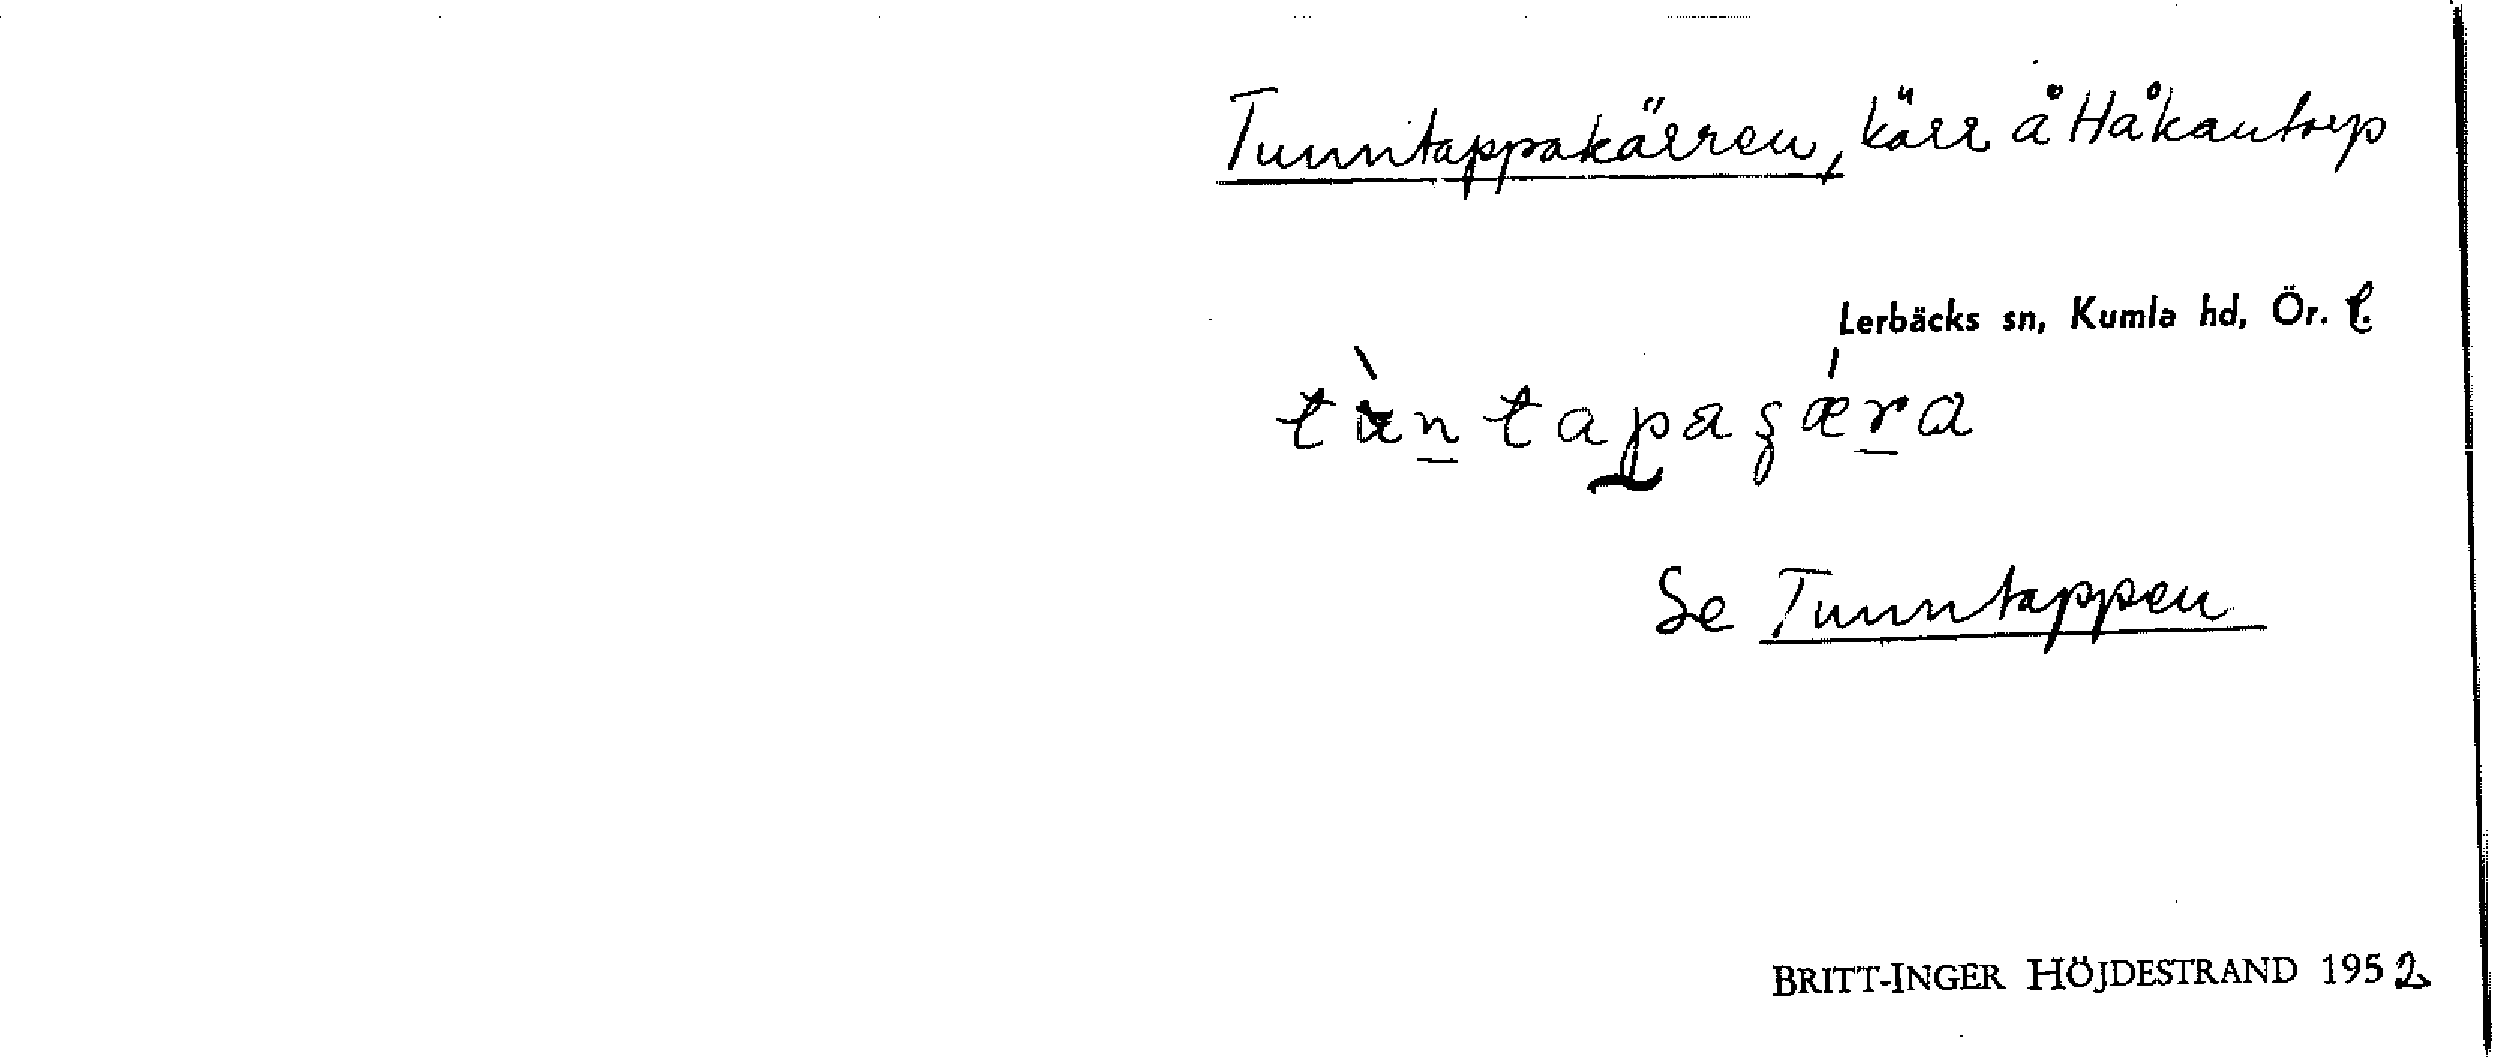 Tunntappakärren, kärr å Håkantorp
Lerbäcks sn, Kumla hd, Ör. l.
Se Tunntappen
BRITT-INGER HÖJDESTRAND 1952